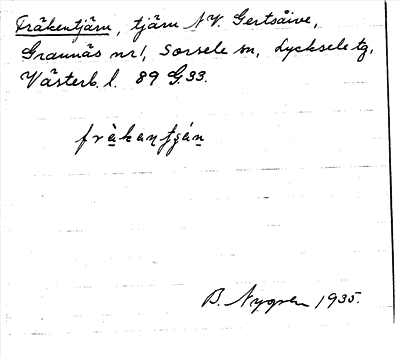 Fräkentjärn, tjärn N.V. Gertsåive,
Grannäs nr 1, Sorsele sn, Lycksele tg,
Västerb. l. 89 G. 33.
fràkantjáṇ
B. Nygren 1935.